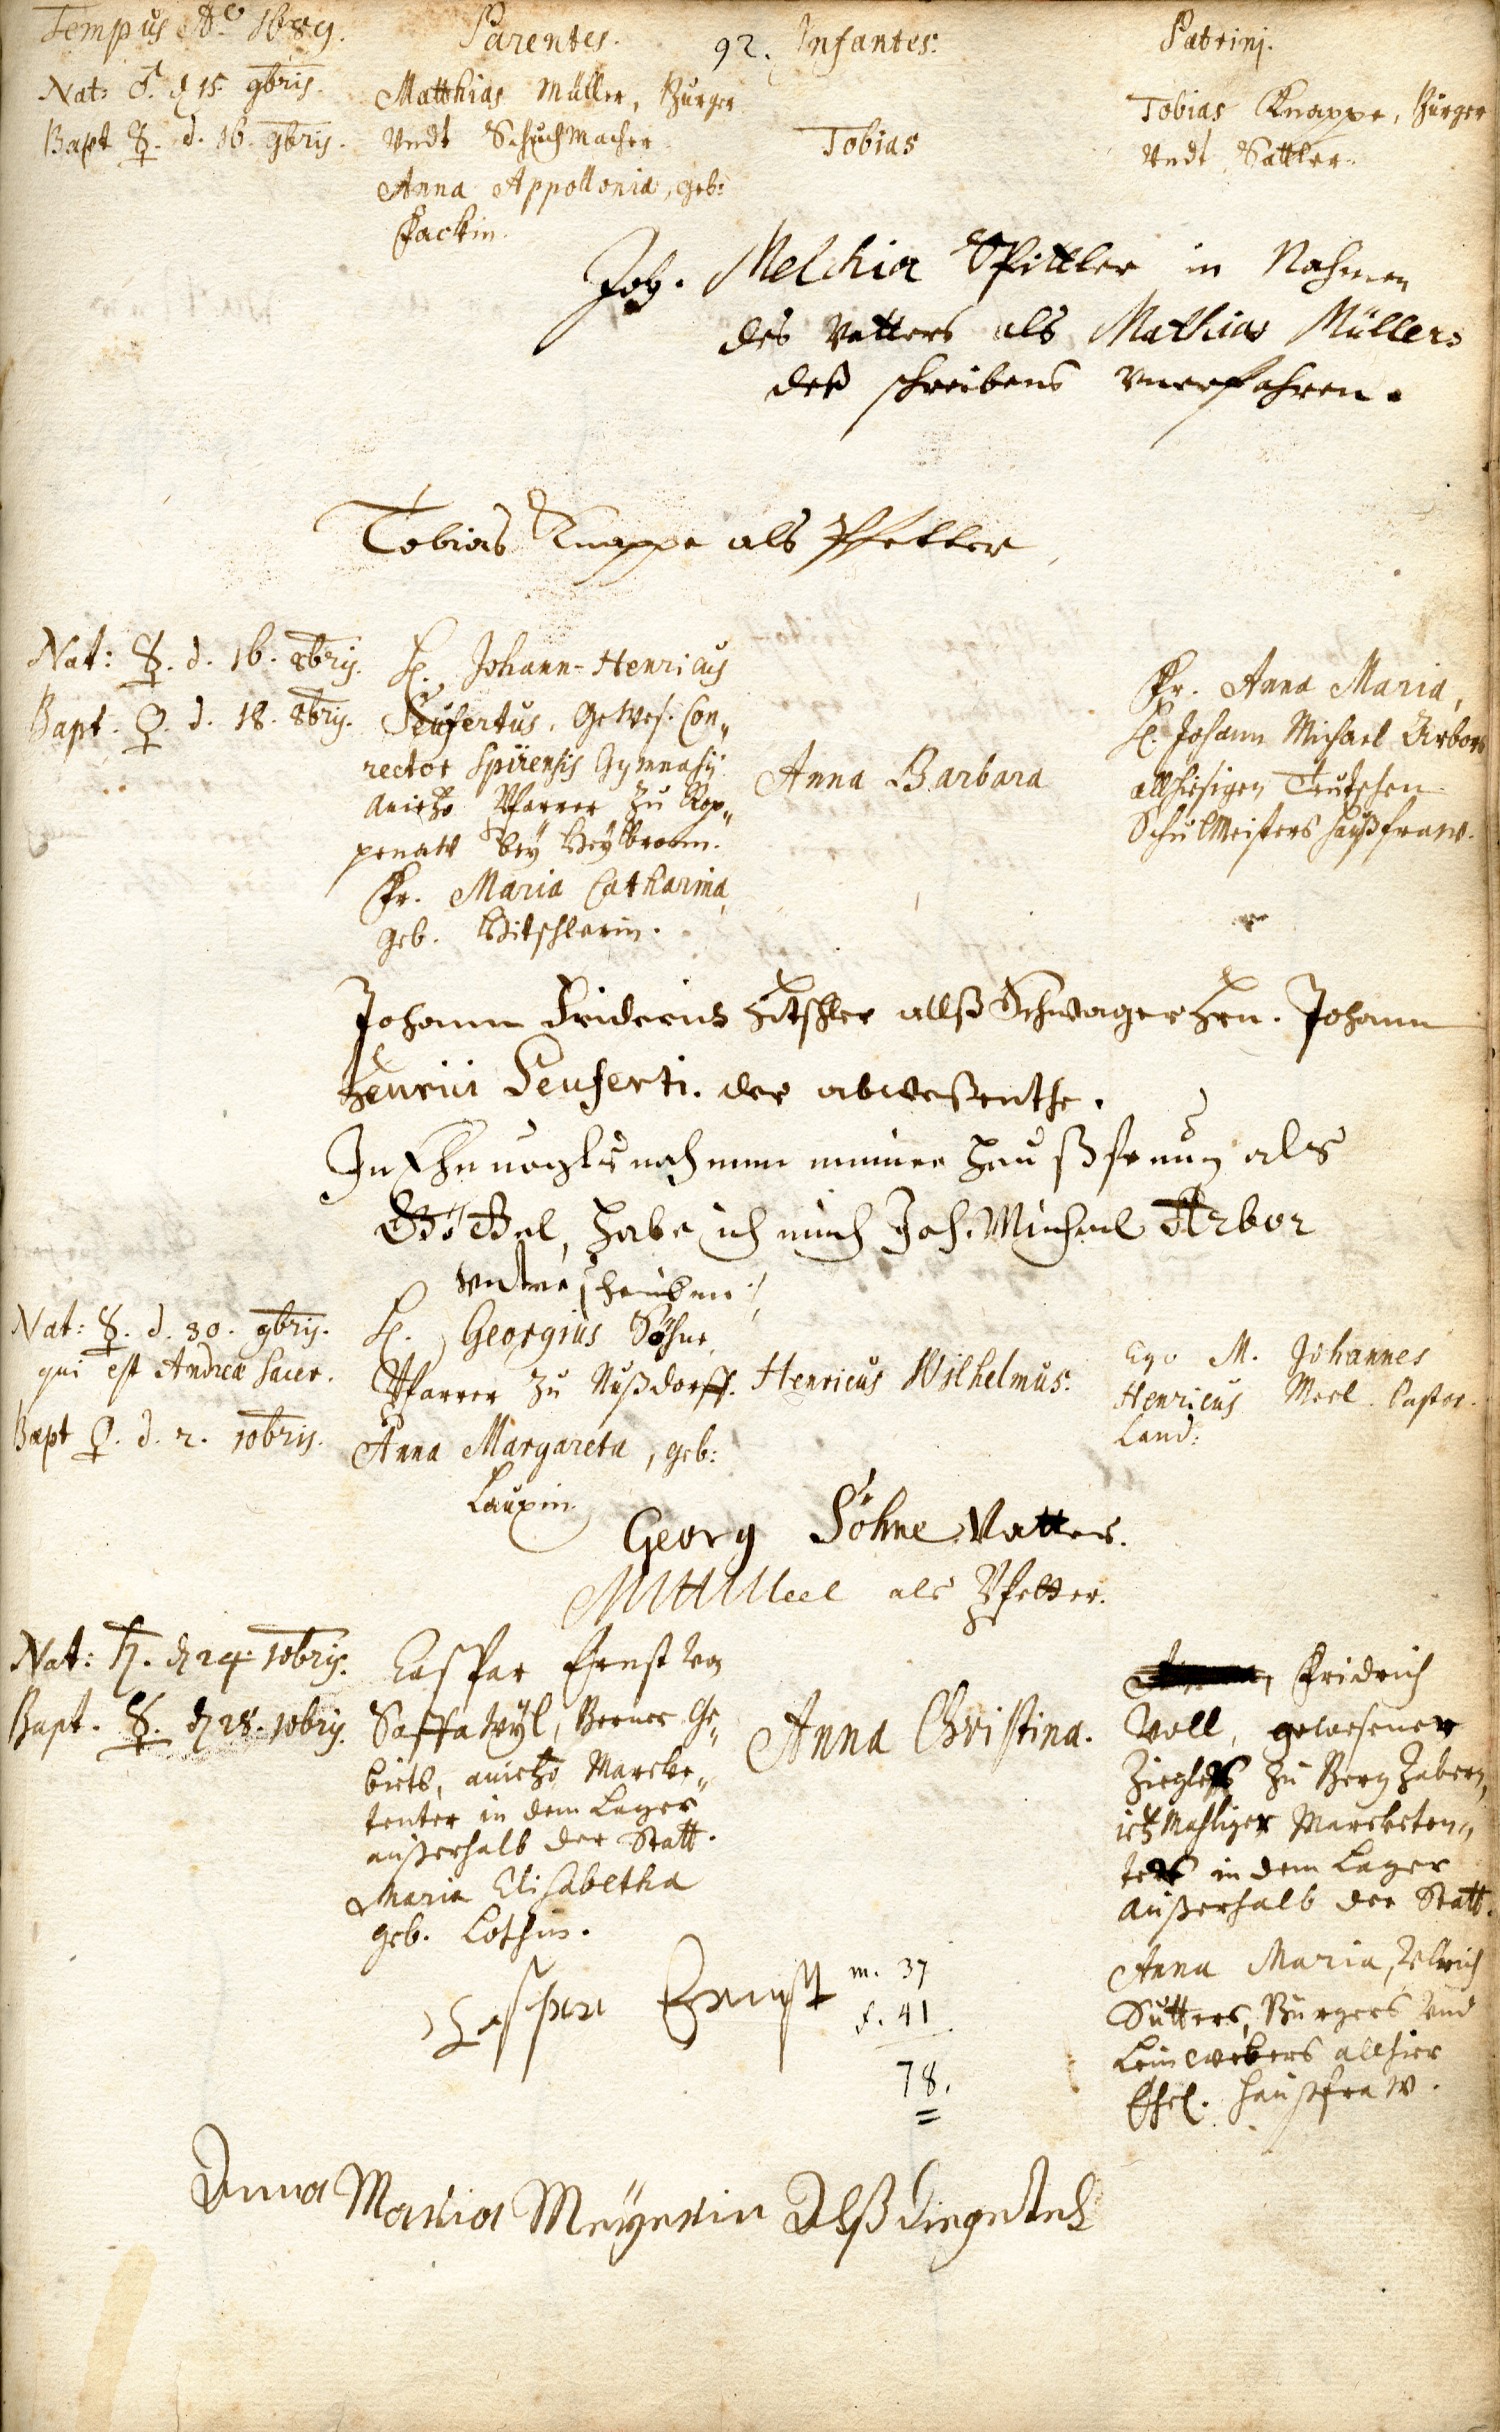 Tempus Aō. 1689.
Parentes.
92. Infantes:
Patrini.
Nat: ♂. d 15. 9bris.
Bapt ☿. d. 16. 9bris.
Matthias Müller, Burger
Undt Schuchmacher
Anna Appollonia, geb:
Fackin.
Tobias
Tobias Knappe, Burger
Undt Sattler.
Joh. Melchior Spittler in Nahmen
des Vatters als Mathias Müllers
deß schreibens unerfahren.
Tobias Knappe als Pfetter
Nat: ☿. d. 16. 8bris.
Bapt. ♀. d. 18. 8bris.
H. Johann-Henricus
Seufertus, Gewes. Con„
rector Spirensis Gymnasij
anietzo Pfarrer zu Rap„
penaw bey Heylbronn.
Fr. Maria Catharina,
geb. Hitschlerin.
Anna Barbara
Fr. Anna Maria,
H. Johann Michael Arbors
allhiesigen Teutschen
Schulmeisters haußfraw.
Johann Fridericus Hitschler allß Schwager Hrn. Johann
Henrici Seuferti. der abweßenthe.
nahmen meiner Haußfrauen als
Göttel, habe ich mich Joh. Michael Arbor
unterschrieben
Nat: ☿. d. 30. 9bris.
qui est Andreæ Sacer.
Bapt ♀. d. 2. 10bris.
H. Georgius Söhne,
Pfarrer zu Nußdorff.
Anna Margareta, geb:
Lauxin.
Henricus Wilhelmus:
Ego M. Johannes
Henricus Meel. Pastor.
Land:
Georg Söhne Vatter.
Meel als Pfetter.
Nat: ♄. d 24. 10bris.
Bapt. ☿. d 28. 10bris.
Caspar Ernst von
Saffawyl, Berner Ge„
biets, anietzo Marcke„
tenter in dem Lager
außerhalb der Statt.
Maria Elisabetha
geb. Lothin.
Anna Christina.
Fridrich
Voll, gewesener
Ziegler zu Bergzabern,
ietzmahliger Marcketen„
ter in dem Lager
außerhalb der Statt.
Anna Maria, Ulrich
Sutters, Burgers und
Leinewebers allhier
Ehel. haußfraw.
Caspar Ernst
m. 37
f. 41
78.
Anna Maria Meyerin Alß